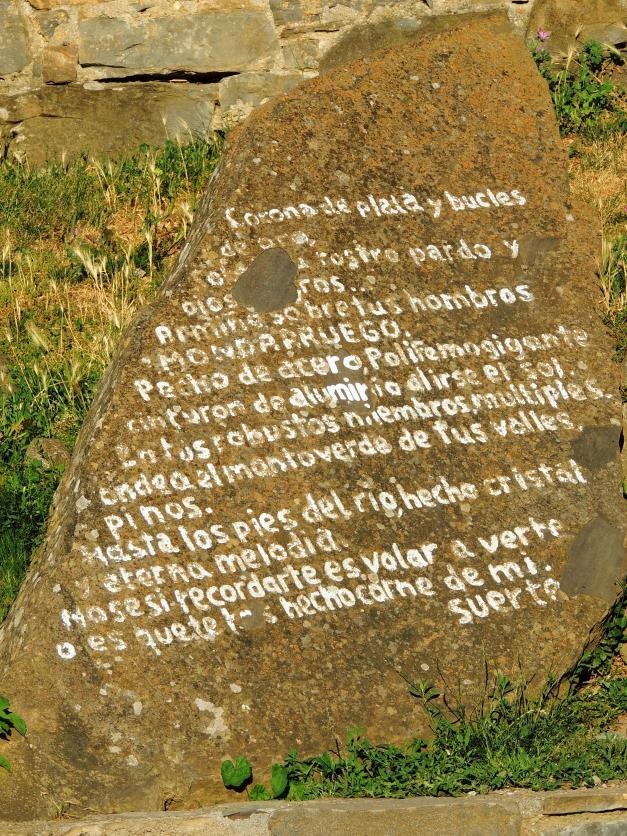 Corona de plata y bucles
de
rostro pardo y
ojos
Armiño sobre tus hombros
MONDAPRUEGO.
Pecho de acero, Polifemo gigante
cinturon de aluminio al irse el sol
En tus robustos miembros, multiples.
ondea el manto verde de tus valles.
pinos.
Hasta los pies del rio, hecho cristal
y eterna melodia.
No se si recordarte es, volar a verte
o es que te has hecho carne de mi.
suerte